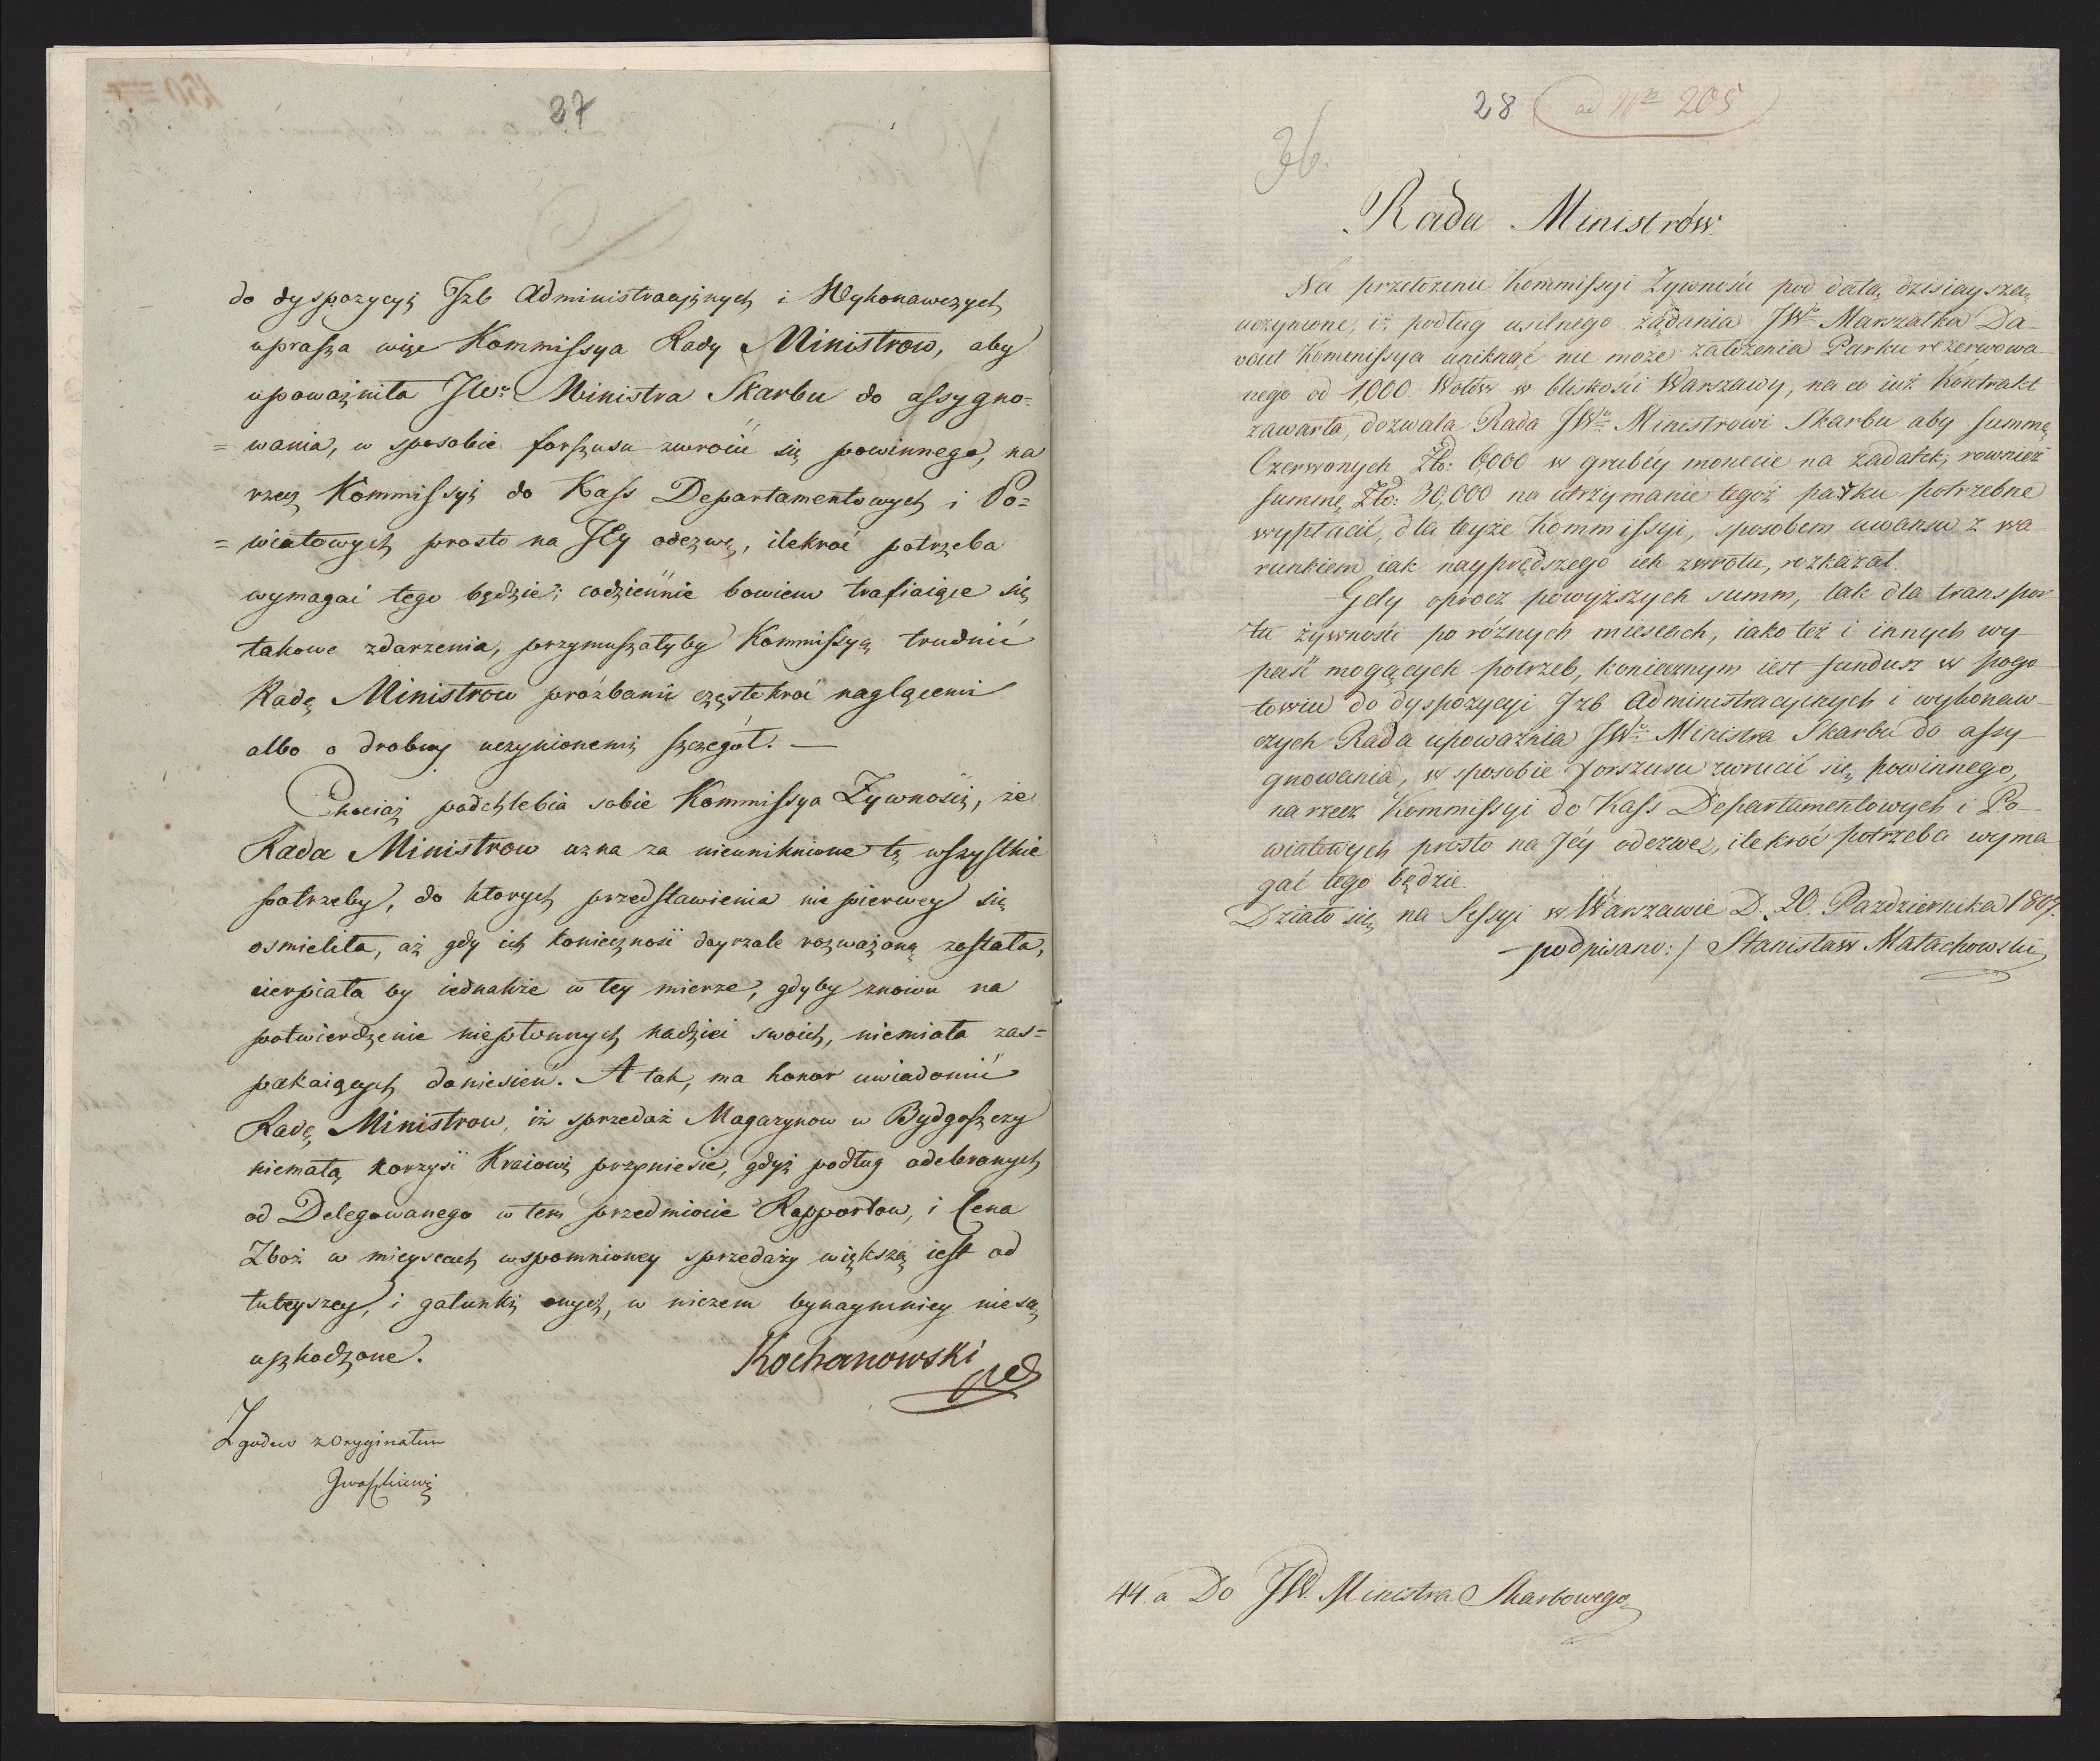 37
do dyspozycyi Jzb Administracyinych i Wykonawczych
uprasza więc Kommissya Rady Ministrow, aby
upoważniła JWo. Ministra Skarbu do assygno=
= wania, w sposobie forszusu zwrocić się powinnego, na
rzecz Kommissyi do Kass Departamentowych i Po=
= wiatowych prosto na Jey odezwę, ilekroć potrzeba
wymagać tego będzie; codziennie bowiem trafiaiące się
takowe zdarzenia, przymuszałyby Kommissyą trudnić
Radę Ministrow prożbami częstokroć naglącemi
albo o drobny uczynionemi szczegół. —
Chociaż podchlebia sobie Kommissya Żywności, że
Rada Ministrow uzna za nieuniknione tę wszystkie
potrzeby, do ktorych przedstawienia nie pierwey się
osmieliła, aż gdy ich konieczność doyrzale rozważoną została,
cierpiała by iednakże w tey mierze, gdyby znowu na
potwierdzenie niepłonnych nadziei swoich, niemiała zas=
pokaiących doniesień. A tak, ma honor uwiadomić
Radę Ministrow, iż sprzedaż Magazynow w Bydgoszczy
niemałą korzyść Kraiowi przyniesie, gdyż podług odebranych
od Delegowanego w tem przedmiocie Rapportow, i Cena
Zboż w mieyscach wspomnioney sprzedaży większą iest od
tuteyszey, i gatunki onych, w niczem bynaymniey niesą
uszkodzone.
Kochanowski
Zgodno z Oryginałem
Jwaszkiewicz
28 ad Nro 205
36.
Rada Ministrów
Na przełożenie Kommissyi Żywności pod datą dzisieyszą
uczynione, iż podług usilnego żądania JWo Marszałka Da-
vout Kommissya uniknąć nie może założenia Parku rezerwowa-
nego od 1,000. Wołów w bliskości Warszawy, na co iuż Kontrakt
zawarła, dozwala Rada JWo Ministrowi Skarbu aby summę
Czerwonych Zło: 6,000 w grubéy monecie na zadatek, rownież
summę Zło: 30,000 na utrzymanie tegoż parku potrzebne
wypłacić, dla teyże Kommissyi, sposobem awansu z wa
runkiem iak nayprędszego ich zwrotu, rozkazał.
Gdy oprocz powyższych summ, tak dla transpor-
tu żywności po różnych miescach, iako też i innych wy-
paść mogących potrzeb, koniecznym iest fundusz w pogo-
towiu do dyspozycyi Jzb Administracyinych i wykonaw-
czych Rada upoważnia JWo Ministra Skarbu do assy-
gnowania, w sposobie forszusu zwrucić się powinnego,
na rzecz Kommissyi do Kass Departamentowych i Po-
wiatowych prosto na Jéy odezwę, ilekroć potrzeba wyma
gać tego będzie.
Działo się na Sessyi w Warszawie D. 20. Pazdziernika 1807.
-podpisano:/ Stanisław Małachowski
44. a Do JW. Ministra Skarbowego